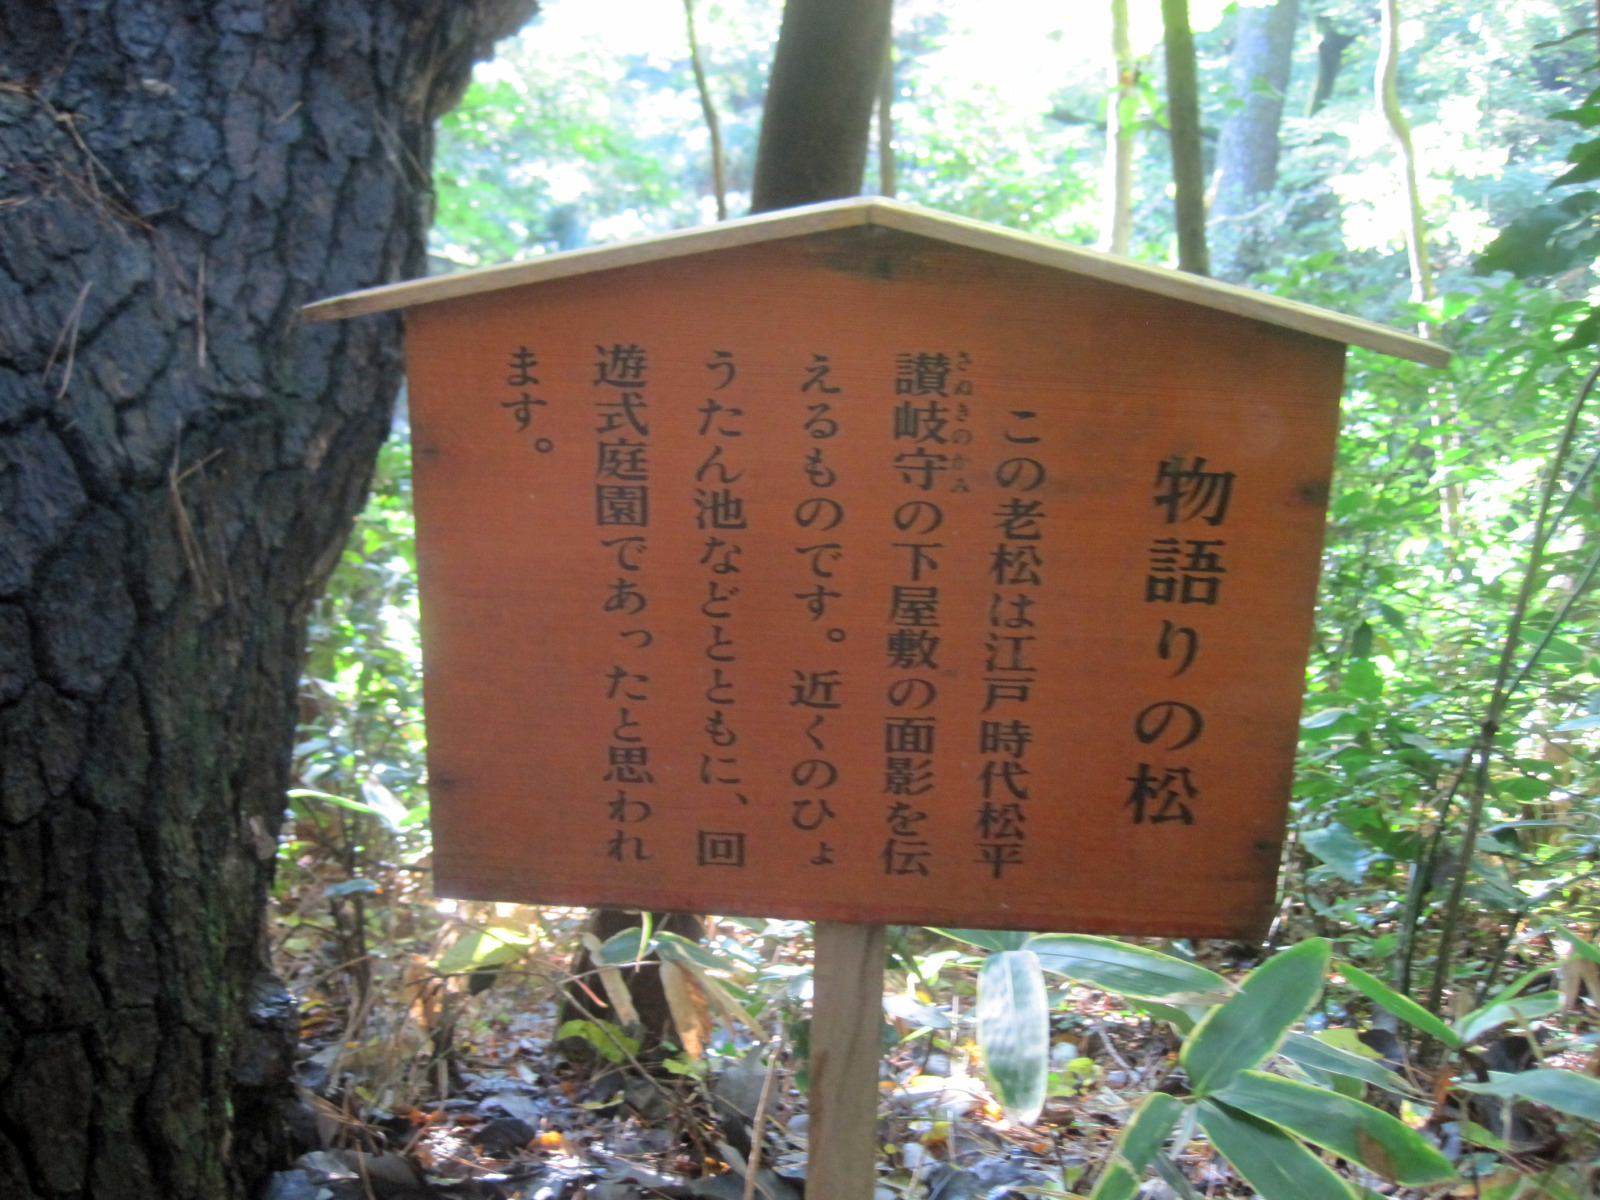 物語りの松
この老松は江戸時代松平
讃岐守の下屋敷の面影を伝
さぬきのかみ
えるものです。近くのひょ
うたん池などとともに、回
遊式庭園であったと思われ
ます。